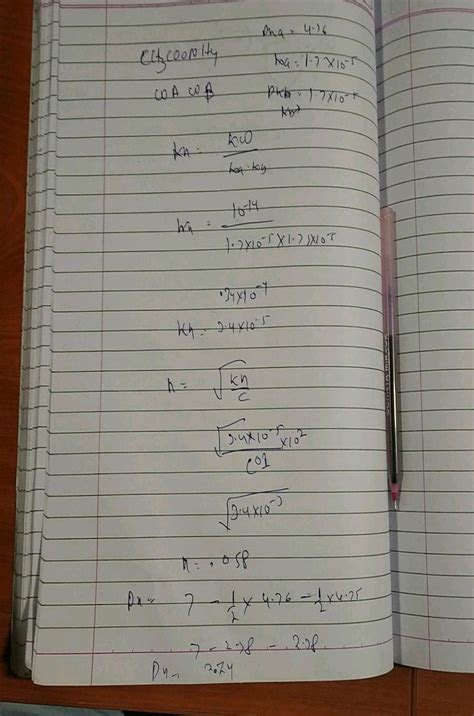 Pka = 4.76
CH3COONH4
ka = 1.7×10-5
WA WB
Pkb = 1.7×10-5
kh = kw / ka.kb
kh = 10-14 / 1.7×10-5×1.7×10-5
.34×10-4
kh = 3.4×10-5
h = √kh/C
√3.4×10-5×102 / .01
√3.4×10-3
h = .058
PH = 7 - 1/2 × 4.76 - 1/2 × 4.75
7 - 2.38 - 2.38
PH = 2.24